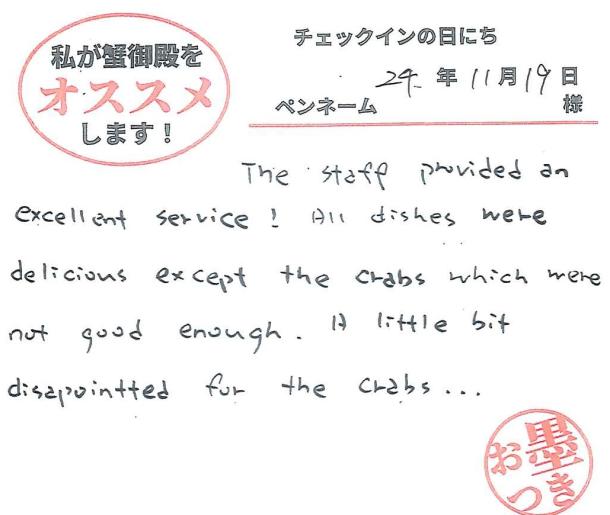 私が蟹御殿を
オススメ
します！
チェックインの日にち
24年11月19日
ペンネーム 様
The staff provided an
excellent service! All dishes were
delicious except the crabs which were
not good enough. A little bit
disapointted for the crabs...
お墨
つき